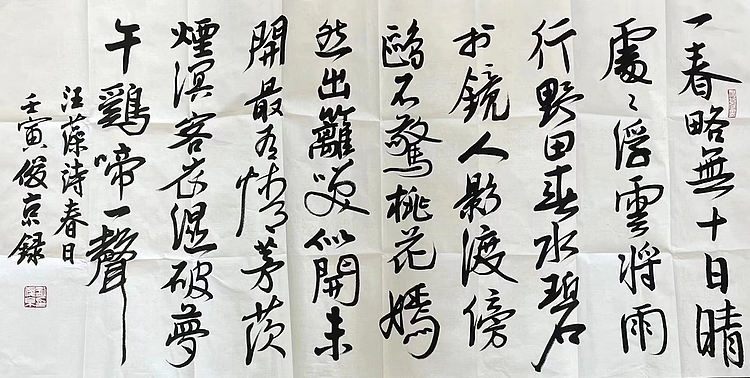 一春略無十日晴
處〻浮雲將雨
行野田春水碧
於鏡人影渡傍
鷗不驚桃花嫣
然出籬笑似開未
開最有情茅茨
煙溟客衣濕破夢
午鷄啼一聲
汪藻詩春日
壬寅俊京録